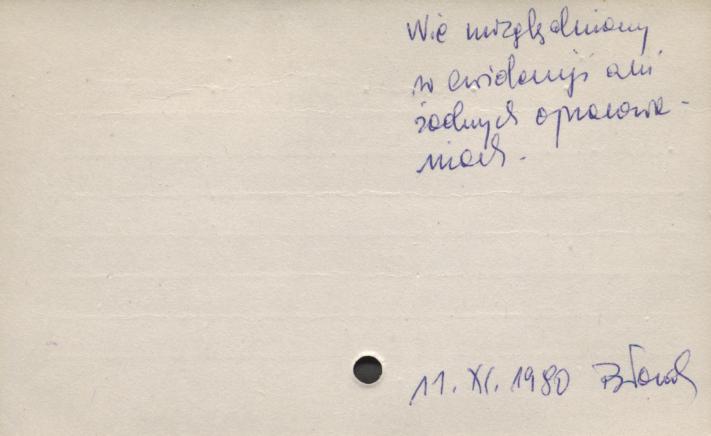 Nie uwzględniony
w ewidencji ani
żadnych opracowa-
niach.
11. XI. 1980